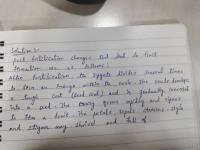 Solution 2:
Post fertilisation changes that lead to fruit
formation are as follows:
After fertilisation, the zygote divides several times
to form an embryo within the ovule. The ovule develops
a tough coat (seed coat) and is gradually converted
into a seed. The ovary grows rapidly and ripens
to form a fruit. The petals, sepals, stamens, style
and stigma may shrivel and fall off